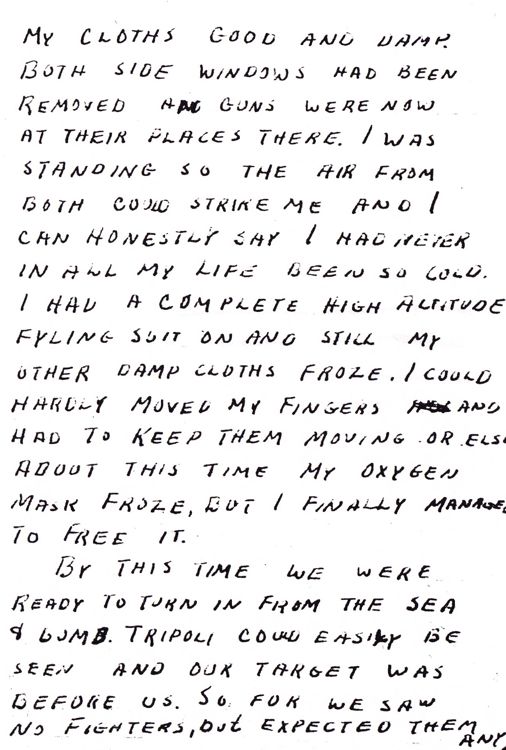 MY CLOTHS GOOD AND DAMP.
BOTH SIDE WINDOWS HAD BEEN
REMOVED AND GUNS WERE NOW
AT THEIR PLACES THERE. I WAS
STANDING SO THE AIR FROM
BOTH COULD STRIKE ME AND I
CAN HONESTLY SAY I HAD NEVER
IN ALL MY LIFE BEEN SO COLD.
I HAD A COMPLETE HIGH ALTITUDE
FYLING SUIT ON AND STILL MY
OTHER DAMP CLOTHS FROZE. I COULD
HARDLY MOVED MY FINGERS AND
HAD TO KEEP THEM MOVING OR ELSE
ABOUT THIS TIME MY OXYGEN
MASK FROZE, BUT I FINALLY MANAGED
TO FREE IT.
BY THIS TIME WE WERE
READY TO TURN IN FROM THE SEA
& BOMB. TRIPOLI COULD EASILY BE
SEEN AND OUR TARGET WAS
BEFORE US. SO FOR WE SAW
NO FIGHTERS, BUT EXPECTED THEM
ANY